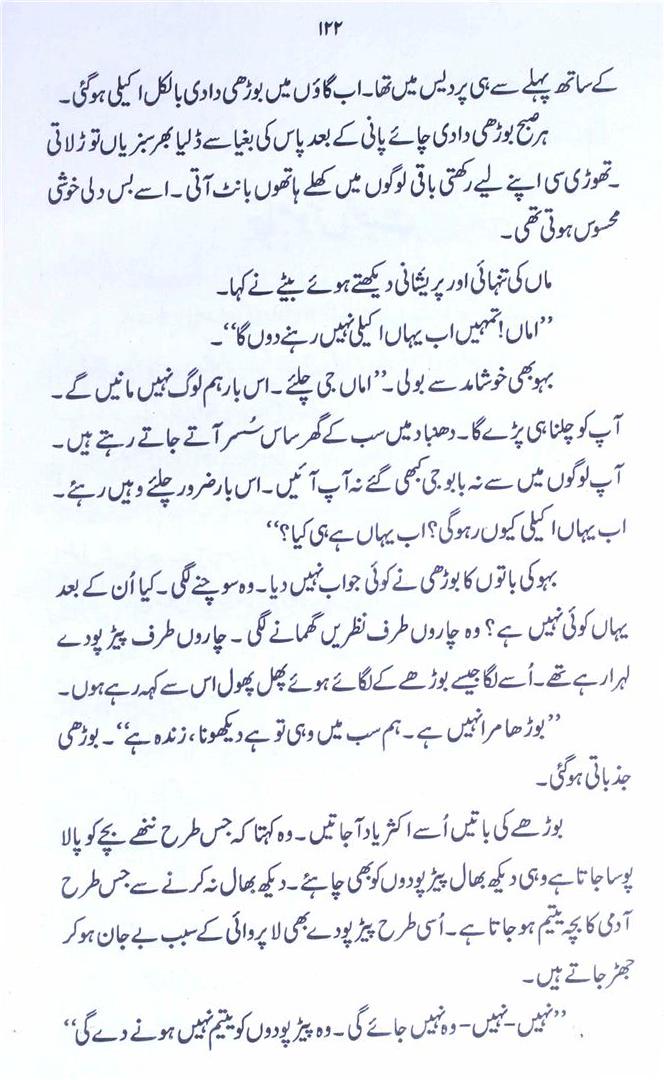 ۱۲۲
کے ساتھ پہلے سے ہی پردیس میں تھا۔ اب گاؤں میں بوڑھی دادی بالکل اکیلی ہوگئی۔
ہر صبح بوڑھی دادی چائے پانی کے بعد پاس کی بغیا سے ڈلیا بھر سبزیاں توڑ لاتی
۔تھوڑی سی اپنے لیے رکھتی باقی لوگوں میں کھلے ہاتھوں بانٹ آتی۔ اسے بس دلی خوشی
محسوس ہوتی تھی۔
ماں کی تنہائی اور پریشانی دیکھتے ہوئے بیٹے نے کہا۔
”اماں! تمہیں اب یہاں اکیلی نہیں رہنے دوں گا“۔
بہو بھی خوشامد سے بولی۔ ”اماں جی چلئے۔ اس بار ہم لوگ نہیں مانیں گے۔
آپ کو چلنا ہی پڑے گا۔ دھنباد میں سب کے گھر ساس سُسر آتے جاتے رہتے ہیں۔
آپ لوگوں میں سے نہ بابوجی کبھی گئے نہ آپ آئیں۔ اس بار ضرور چلئے وہیں رہئے۔
اب یہاں اکیلی کیوں رہوگی؟ اب یہاں ہے ہی کیا؟“
بہو کی باتوں کا بوڑھی نے کوئی جواب نہیں دیا۔ وہ سوچنے لگی۔ کیا اُن کے بعد
یہاں کوئی نہیں ہے؟ وہ چاروں طرف نظریں گھمانے لگی۔ چاروں طرف پیڑ پودے
لہرا رہے تھے۔ اُسے لگا جیسے بوڑھے کے لگائے ہوئے پھل پھول اس سے کہہ رہے ہوں۔
”بوڑھا مرا نہیں ہے۔ ہم سب میں وہی تو ہے دیکھونا، زندہ ہے“۔ بوڑھی
جذباتی ہوگئی۔
بوڑھے کی باتیں اُسے اکثر یاد آجاتیں۔ وہ کہتا کہ جس طرح ننھے بچے کو پالا
پوسا جاتا ہے وہی دیکھ بھال پیڑ پودوں کو بھی چاہئے۔ دیکھ بھال نہ کرنے سے جس طرح
آدمی کا بچہ یتیم ہو جاتا ہے۔ اُسی طرح پیڑ پودے بھی لا پروائی کے سبب بے جان ہوکر
جھڑ جاتے ہیں۔
”نہیں - نہیں - وہ نہیں جائے گی۔ وہ پیڑ پودوں کو یتیم نہیں ہونے دے گی“